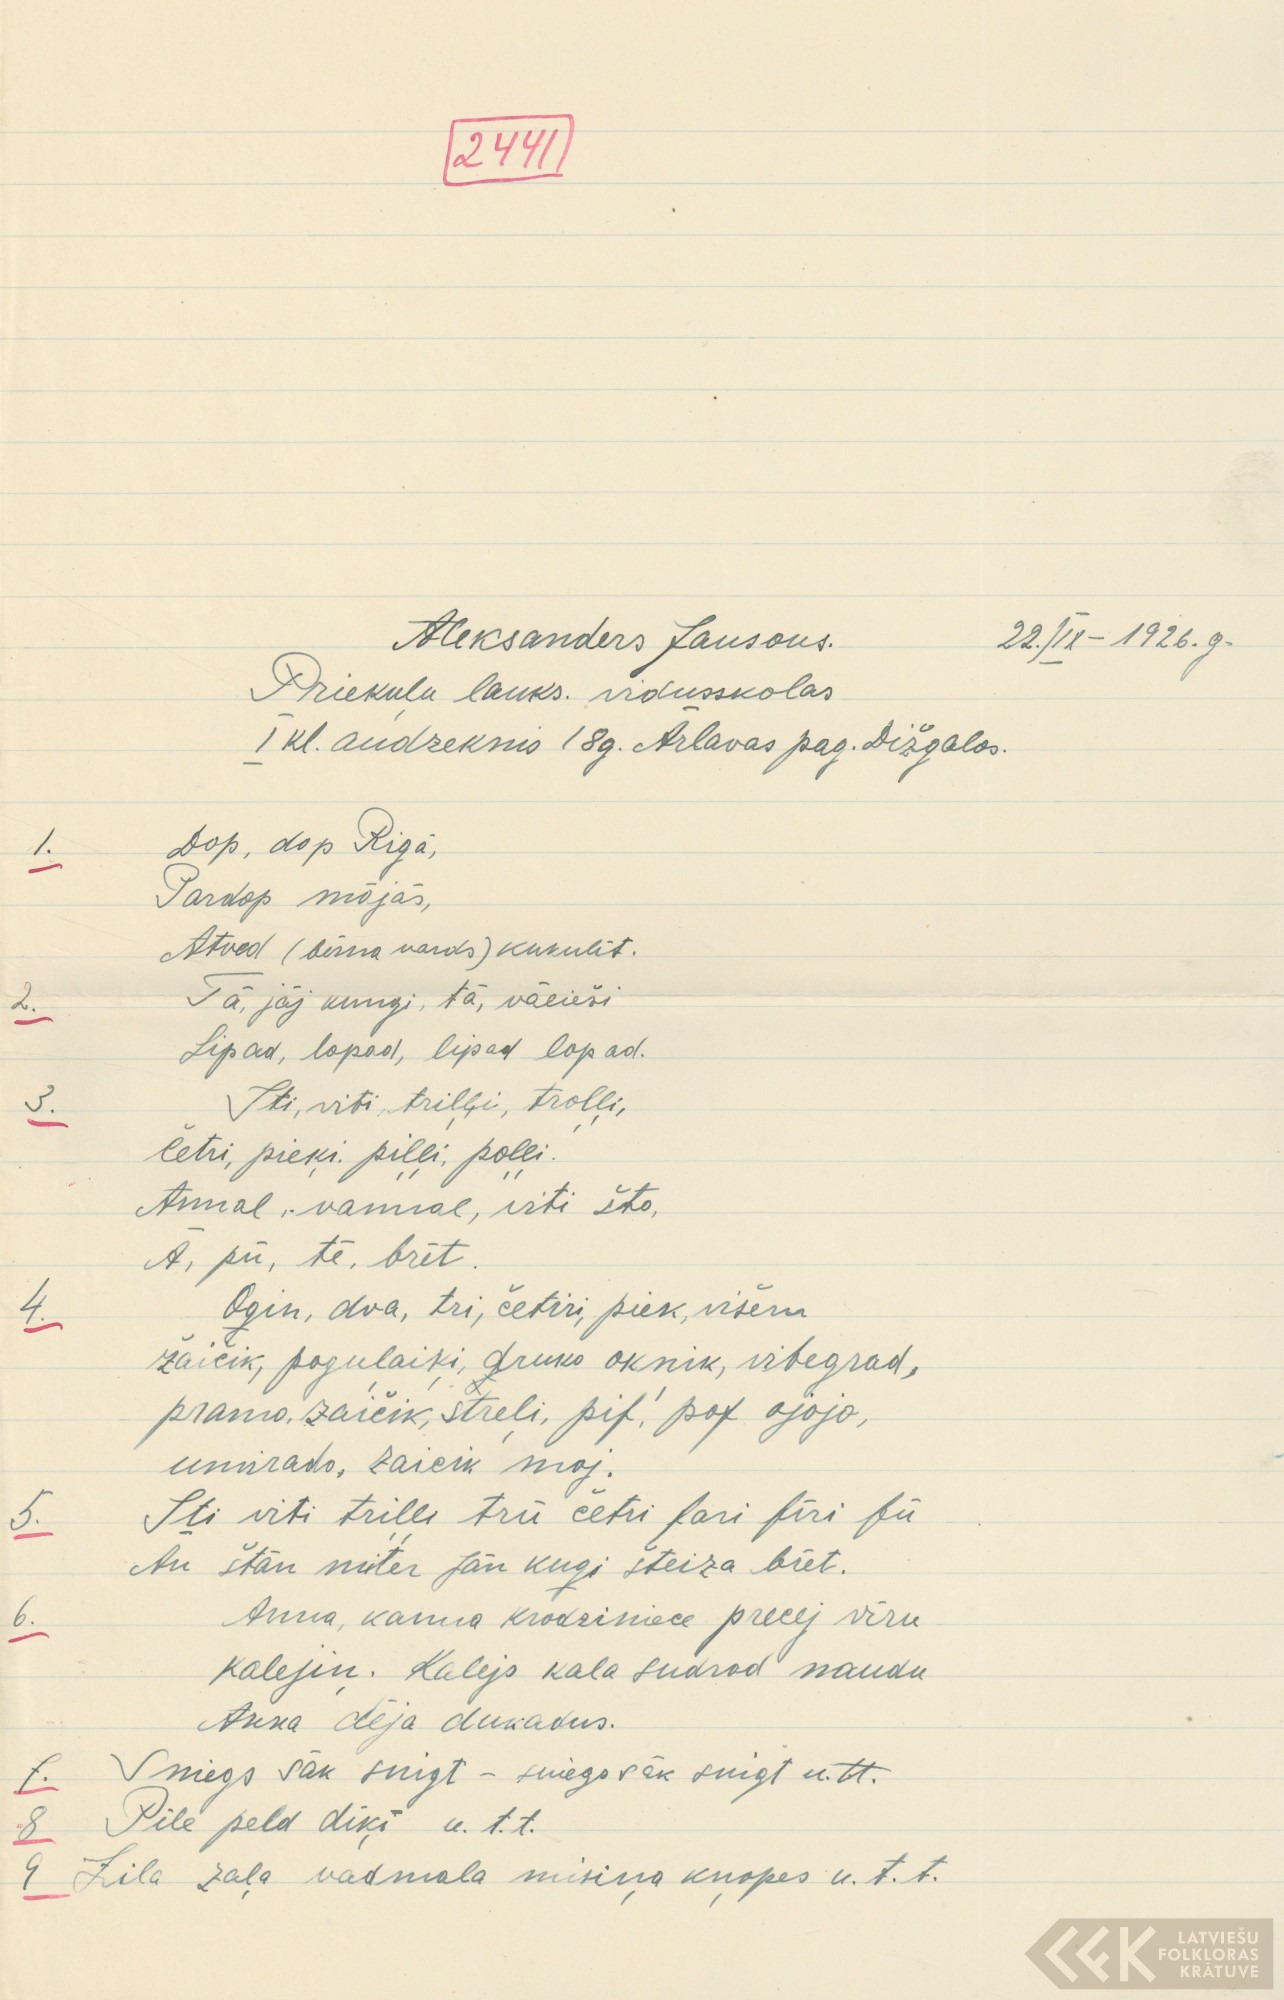 2441
Aleksanders Jansons. 22./IX – 1926. g.
Priekuļu lauks. vidusskolas
I kl. audzeknis 18g. Ārlavas pag. Dižgalos.
1. Dop, dop Rigā,
Pardop mājās,
Atved (bērna vards) kukulit.
2. Tā, jāj kungi, tā, vācieši
Lipad, lopad, lipad lopad.
3. Iti, viti, triļļi, troļļi,
četri, pieķi. piļļi, poļļi.
Annal, vannal, viti što,
Ā, pū, tē, brēt.
4. Ogin, dva, tri, četiri, piek, višēru
žaičik, poguļaiķi, druko oknik, vibegrad,
pramo. zaičik, štreļi, pif! pof ojojo,
umirado, zaicik moj.
5. Iti viti triļļi trū četri fari fīri fū
An štān miter Jān kugi šteiza brēt.
6. Anna, kanna krodziniece precej vīru
kalejiņ. Kalejs kala sudrad naudu
Anna dēja dukadus.
7. Sniegs sāk snigt – sniegs sāk snigt u.tt.
8 Pile peld dīķī u. t. t.
9 Zila zaļa vadmala misiņa kņopes u. t. t.
LATVIEŠU
FOLKLORAS
KRĀTUVE